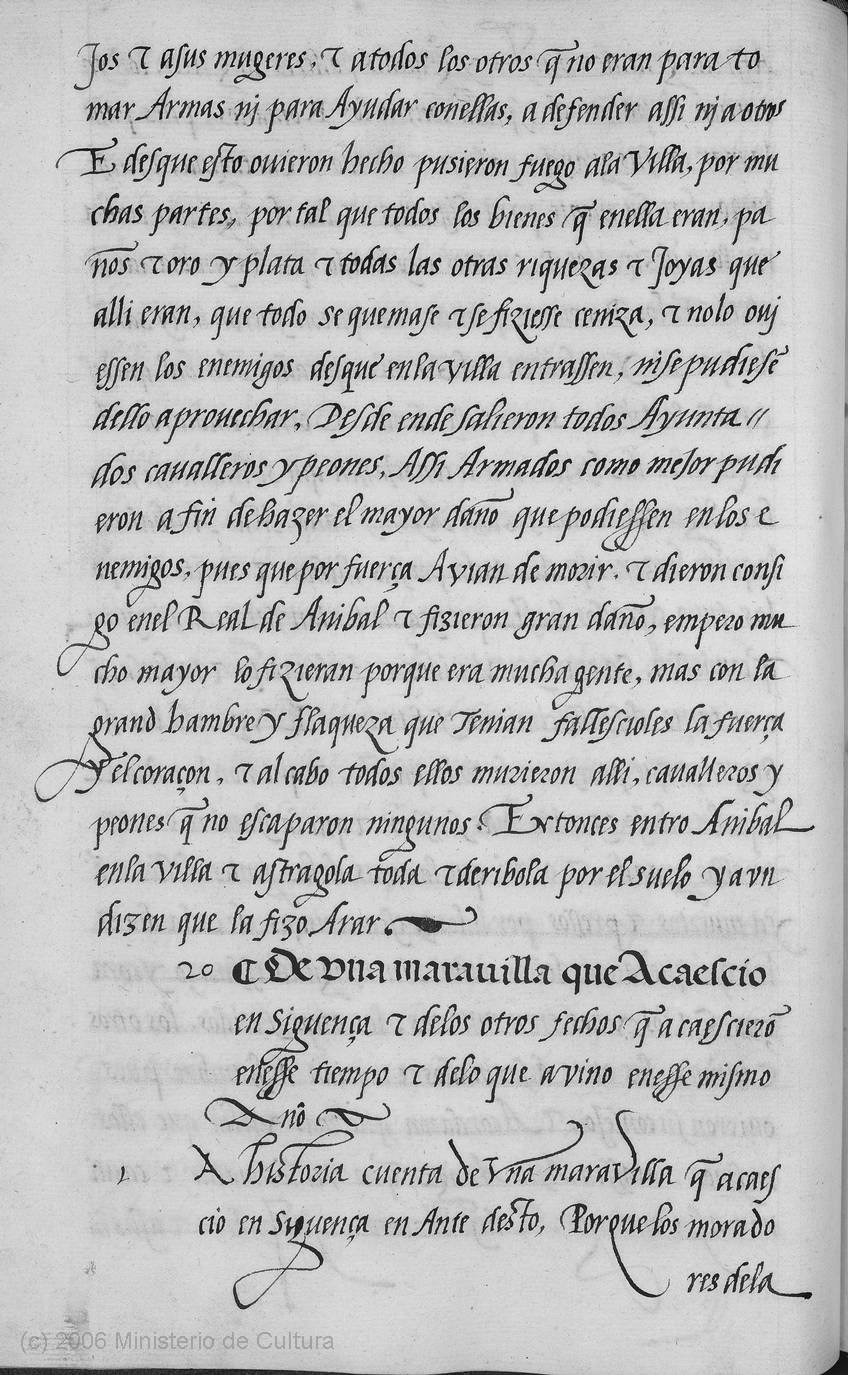 Jos τ asus mugeres, τ atodos los otros q̃ no eran para to
mar Armas nj para Ayudar conellas, a defender assi nj a otros
E desque esto ovieron hecho pusieron fuego ala Villa, por mu
chas partes, por tal que todos los bienes q̃ enella eran, pa
ños τ oro y plata τ todas las otras riquezas τ Joyas que
alli eran, que todo se quemase τ se fiziesse ceniza, τ nolo ovj
essen los enemigos desque enla villa entrassen, nise pudiesē
dello aprovechar, Desde ende salieron todos Ayunta〃
dos cavalleros y peones, Assi Armados como mejor pudi
eron a fin de hazer el mayor daño que podiessen enlos e
nemigos, pues que por fuerça Avian de morir. τ dieron consi
go enel Real de Anibal τ fizieron gran daño, empero mu
cho mayor lo fizieran porque era mucha gente, mas con la
grand hambre y flaqueza que Tenian fallescioles la fuerça
y el coraçon, τ al cabo todos ellos murieron alli, cavalleros y
peones q̃ no escaparon ningunos. Extonces entro Anibal
enla villa τ astragola toda τ deribola por el suelo y avn
dizen que la fizo Arar
20 ¶ De vna marauilla que Acaescio
en Siguença τ delos otros fechos q̃ acaescierō
enesse tiempo τ delo que avino enesse mismo
Año
1 A historia cuenta de Vna maraVilla q̃ acaes
cio en Siguença en Ante desto, Porque los morado
res dela
(c) 2006 Ministerio de Cultura